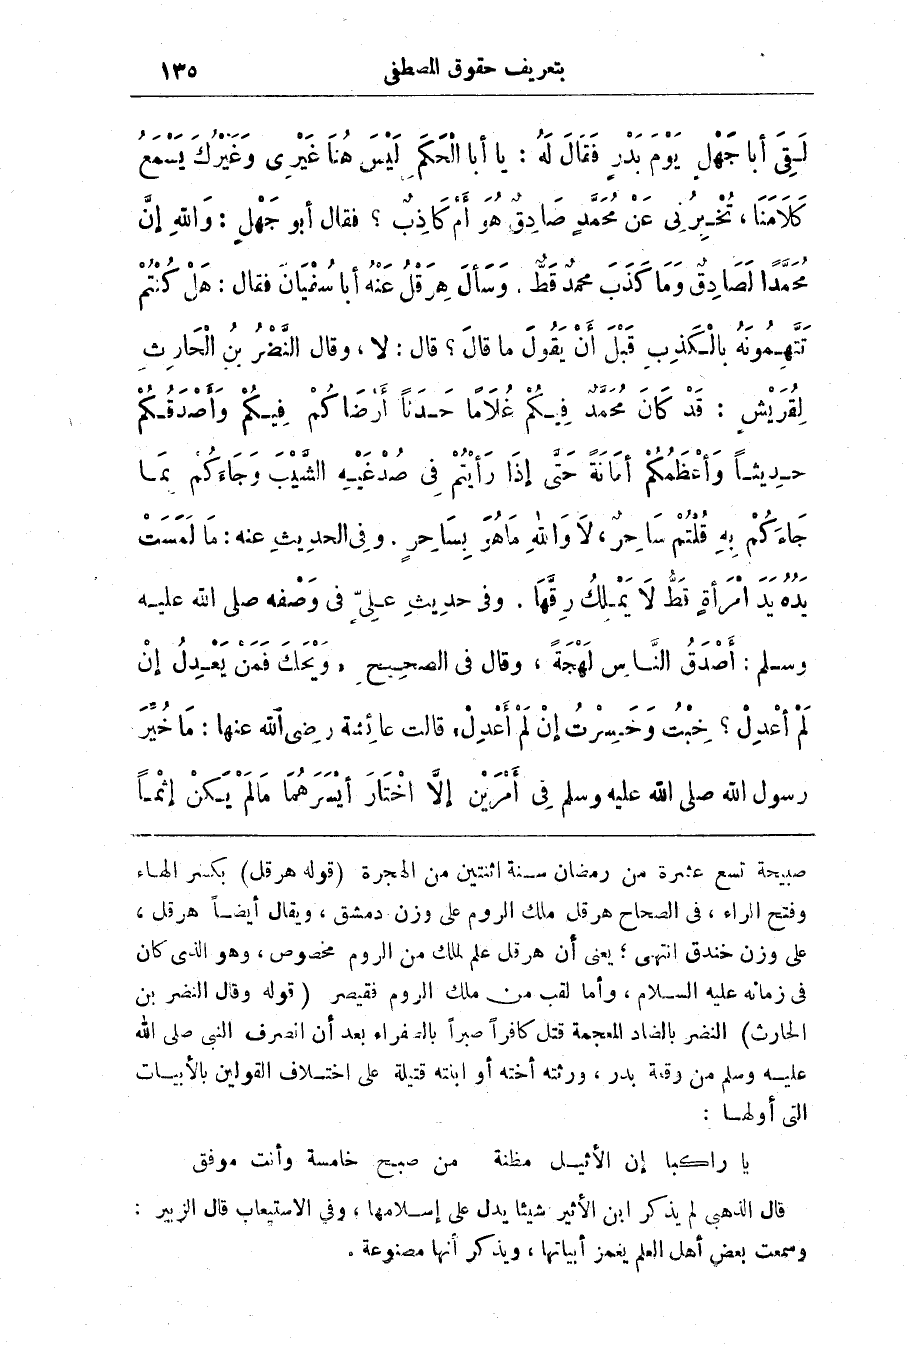 بتعريف حقوق المصطفى ١٣٥
لَقِىَ أبا جَهْلٍ يَوْمَ بَدْرٍ فَقَالَ لَهُ : يا أبا الْحَكَمِ لَيْسَ هُنَا غَيْرِى وَغَيْرُكَ يَسْمَعُ
كَلَامَنَا ، تُخْبِرُنِى عَنْ مُحَمَّدٍ صَادِقٌ هُوَ أَمْ كَاذِبٌ ؟ فقال أبو جَهْلٍ : وَاللهِ إنَّ
مُحَمَّدًا لَصَادِقٌ وَمَا كَذَبَ محمدٌ قَطُّ . وَسَأَلَ هِرَقْلُ عَنْهُ أبا سُفْيَانَ فقال : هَلْ كُنْتُمْ
تَتَّهِمُونَهُ بِالْكَذِبِ قَبْلَ أَنْ يَقُولَ ما قالَ ؟ قال : لا ، وقال النَّضْرُ بنُ الْحَارِثِ
لِقُرَيْشٍ : قَدْ كَانَ مُحَمَّدٌ فِيكُمْ غُلَامًا حَدَثًا أَرْضَاكُمْ فِيكُمْ وَأَصْدَقَكُمْ
حدِيثاً وَأَعْظَمَكُمْ أمَانَةً حَتَّى إذَا رَأَيْتُمْ فِى صُدْغَيْهِ الشَّيْبَ وَجَاءَكُمْ بِمَا
جَاءَكُمْ بِهِ قُلْتُمْ سَاحِرٌ ، لَا وَاللهِ مَا هُوَ بِسَاحِرٍ . وفى الحديثِ عنه : مَا لَمَسَتْ
يَدُهُ يَدَ امْرَأَةٍ قَطُّ لَا يَمْلِكُ رِقَّهَا . وفى حديثِ عَلِىٍّ فى وَصْفه صلى الله عليه
وسلم : أَصْدَقُ النَّاسِ لَهْجَةً ، وقال فى الصحيحِ ، وَيْحَكَ فَمَنْ يَعْدِلُ إنْ
لَمْ أَعْدِلْ ؟ خِبْتُ وَخَسِرْتُ إنْ لَمْ أَعْدِلْ ، قالت عائشة رضى الله عنها : مَا خُيِّرَ
رسول الله صلى الله عليه وسلم فِى أَمْرَيْنِ إلَّا اخْتَارَ أَيْسَرَهُمَا مَالَمْ يَكُنْ إثْمًا
صبيحة تسع عشرة من رمضان سنة اثنتين من الهجرة (قوله هرقل) بكسر الهاء
وفتح الراء ، فى الصحاح هرقل ملك الروم على وزن دمشق ، ويقال أيضاً هرقل ،
على وزن خندق انتهى ؛ يعنى أن هرقل علم لملك من الروم مخصوص ، وهو الذى كان
فى زمانه عليه السلام ، وأما لقب من ملك الروم فقيصر ( قوله وقال النضر بن
الحارث) النضر بالضاد المعجمة قتل كافراً صبراً بالصفراء بعد أن انصرف النبى صلى الله
عليه وسلم من وقعة بدر ، ورثته أخته أو ابنته قتيلة على اختلاف القولين بالأبيات
التى أولها :
يا راكبا إن الأثيل مظنة من صبح خامسة وأنت موفق
قال الذهبى لم يذكر ابن الأثير شيئا يدل على إسلامها ، وفى الاستيعاب قال الزبير :
وسمعت بعض أهل العلم يغمز أبياتها ، ويذكر أنها مصنوعة .